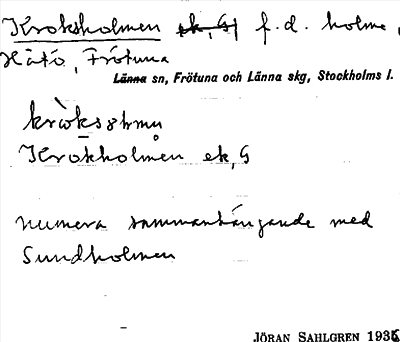 Kroksholmen ek, G f. d. holme,
Hätö, Frötuna
Länna sn, Frötuna och Länna skg, Stockholms l.
Krokholmen ek, G
numera sammanhängande med
Sundholmen
JÖRAN SAHLGREN 1935